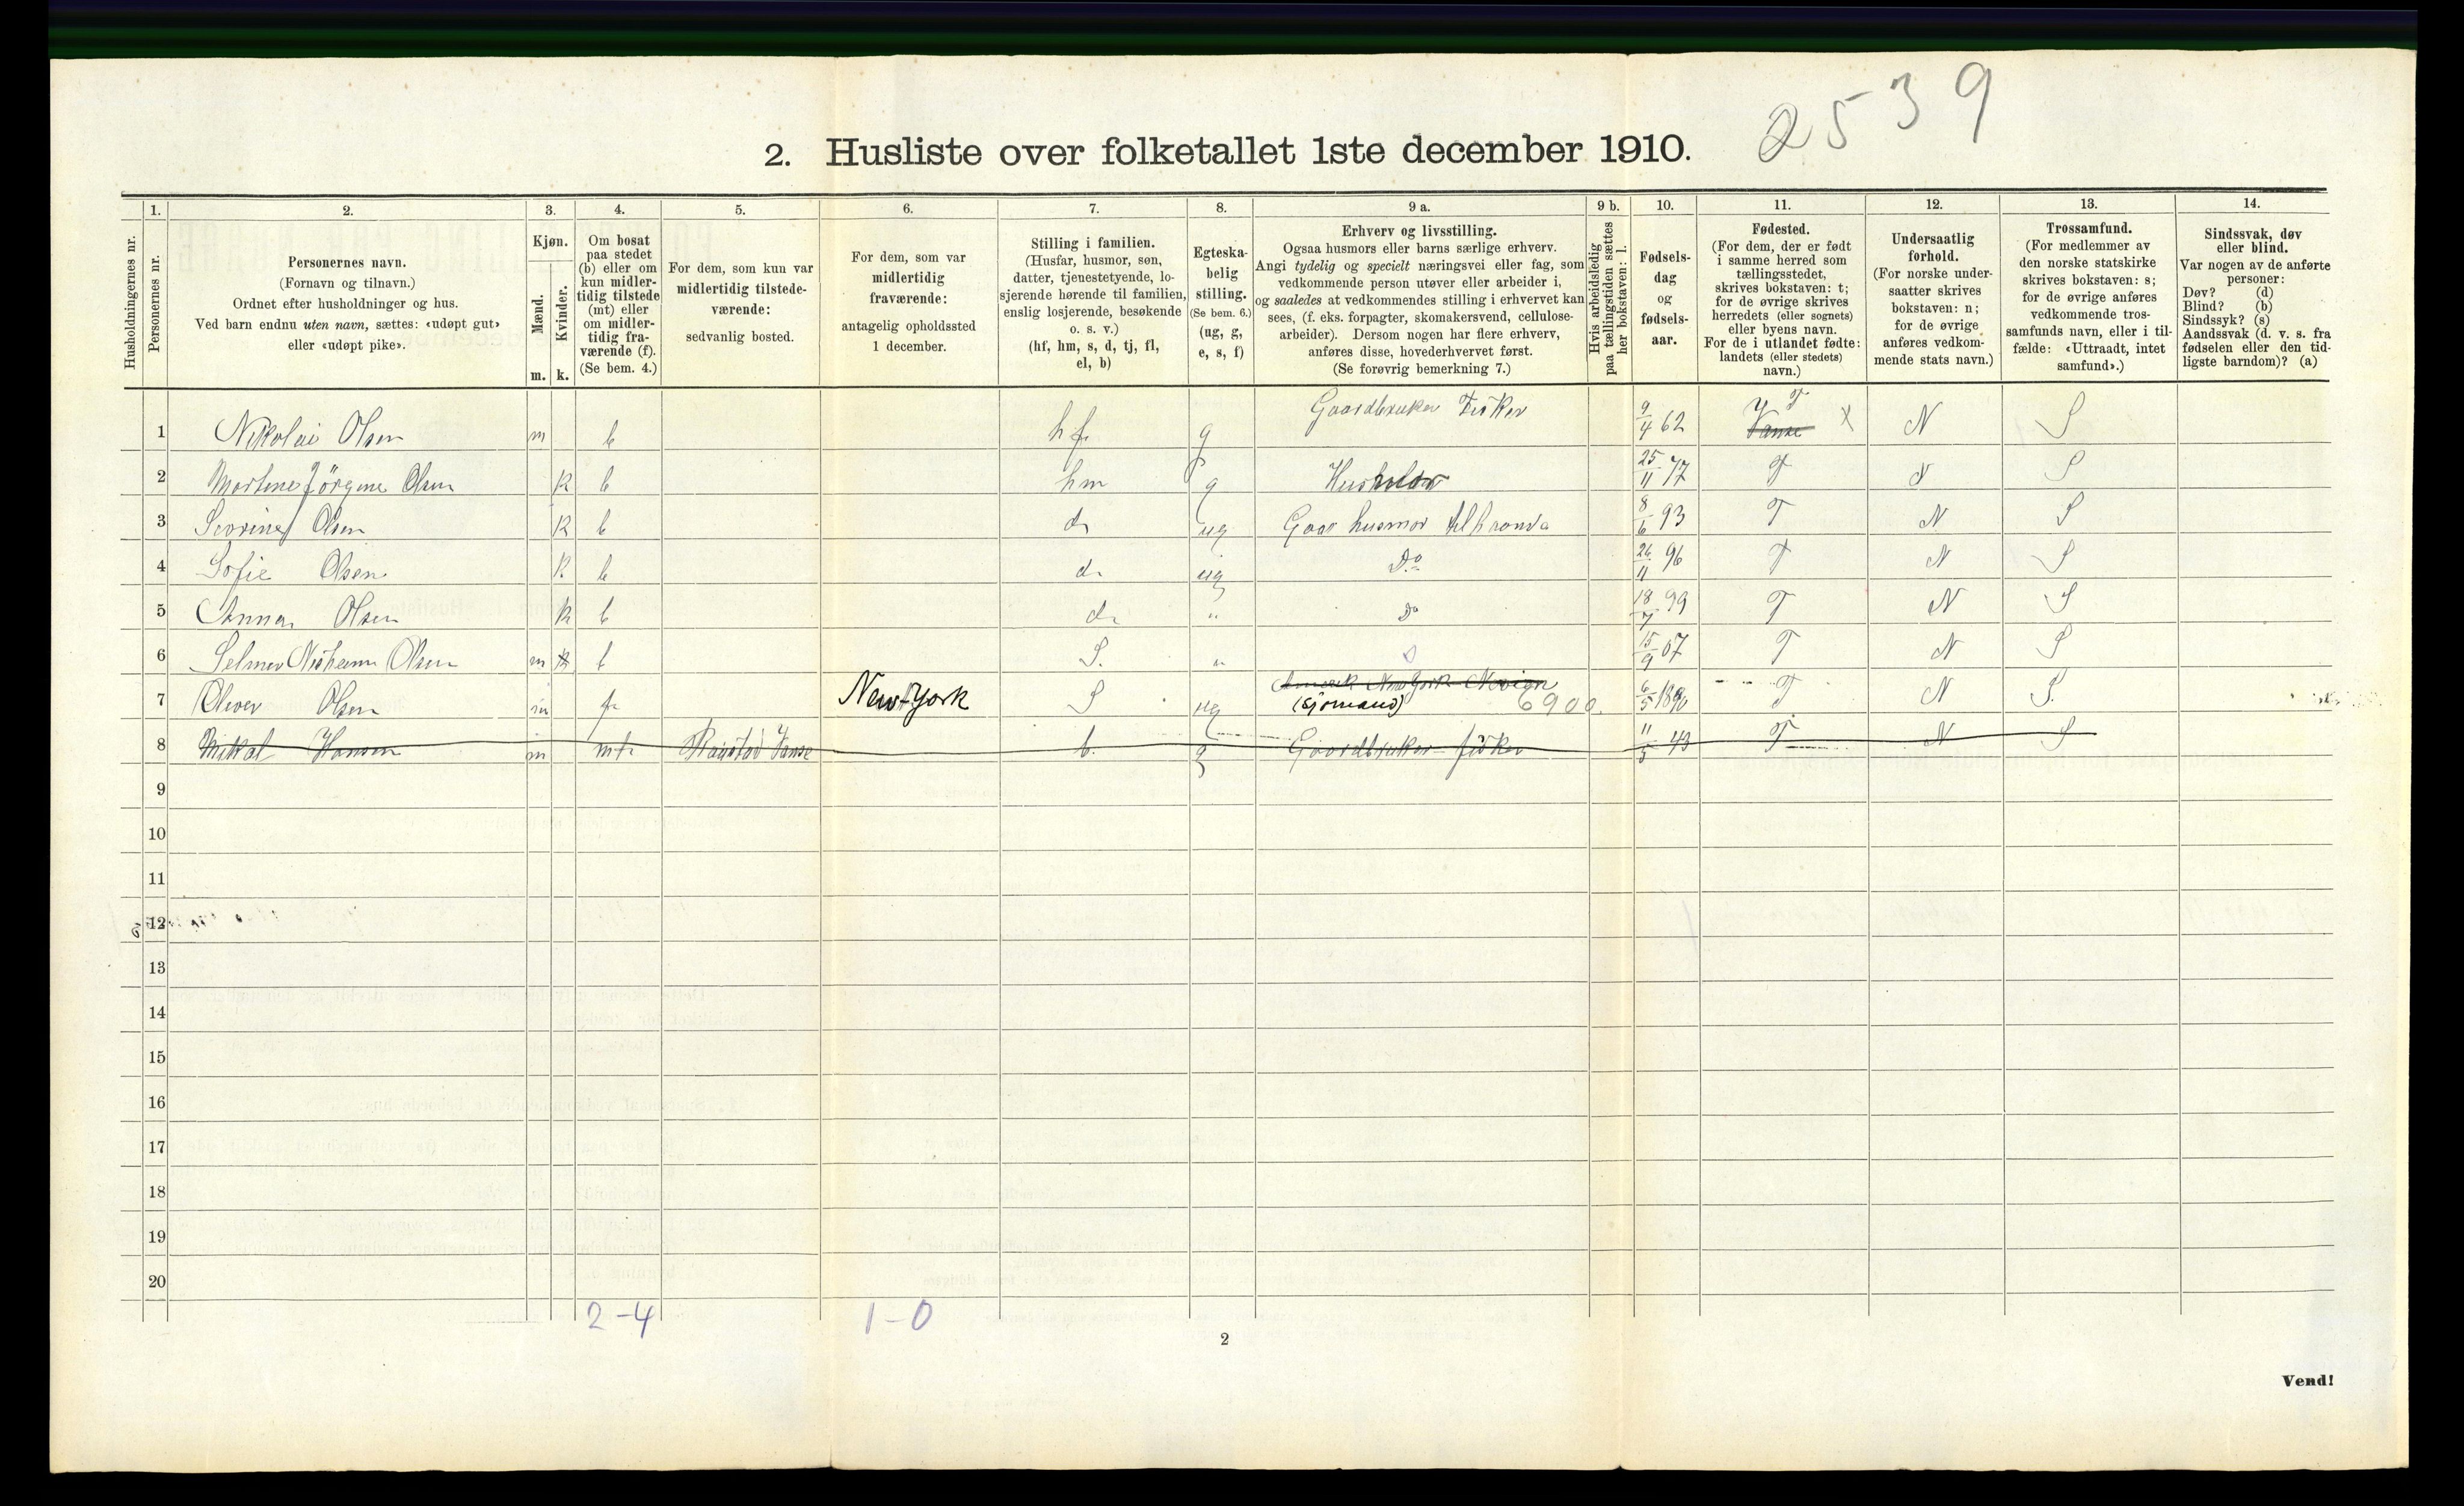 2539
2. Husliste over folketallet 1ste december 1910.
Husholdningernes nr.
1. Personernes nr.
2. Personernes navn.
(Fornavn og tilnavn.)
Ordnet efter husholdninger og hus.
Ved barn endnu uten navn, sættes: «udøpt gut»
eller «udøpt pike».
3. Kjøn.
Mænd. m.
Kvinder. k.
4. Om bosat
paa stedet
(b) eller om
kun midler-
tidig tilstede
(mt) eller
om midler-
tidig fra-
værende (f).
(Se bem. 4.)
5. For dem, som kun var
midlertidig tilstede-
værende:
sedvanlig bosted.
6. For dem, som var
midlertidig
fraværende:
antagelig opholdssted
1 december.
7. Stilling i familien.
(Husfar, husmor, søn,
datter, tjenestetyende, lo-
sjerende hørende til familien,
enslig losjerende, besøkende
o. s. v.)
(hf, hm, s, d, tj, fl,
el, b)
8. Egteska-
belig
stilling.
(Se bem. 6.)
(ug, g,
e, s, f)
9 a. Erhverv og livsstilling.
Ogsaa husmors eller barns særlige erhverv.
Angi tydelig og specielt næringsvei eller fag, som
vedkommende person utøver eller arbeider i,
og saaledes at vedkommendes stilling i erhvervet kan
sees, (f. eks. forpagter, skomakersvend, cellulose-
arbeider). Dersom nogen har flere erhverv,
anføres disse, hovederhvervet først.
(Se forøvrig bemerkning 7.)
9 b. Hvis arbeidsledig
paa tællingstiden sættes
her bokstaven: l.
10. Fødsels-
dag
og
fødsels-
aar.
11. Fødested.
(For dem, der er født
i samme herred som
tællingsstedet,
skrives bokstaven: t;
for de øvrige skrives
herredets (eller sognets)
eller byens navn.
For de i utlandet fødte:
landets (eller stedets)
navn.)
12. Undersaatlig
forhold.
(For norske under-
saatter skrives
bokstaven: n;
for de øvrige
anføres vedkom-
mende stats navn.)
13. Trossamfund.
(For medlemmer av
den norske statskirke
skrives bokstaven: s;
for de øvrige anføres
vedkommende tros-
samfunds navn, eller i til-
fælde: «Uttraadt, intet
samfund».)
14. Sindssvak, døv
eller blind.
Var nogen av de anførte
personer:
Døv? (d)
Blind? (b)
Sindssyk? (s)
Aandssvak (d. v. s. fra
fødselen eller den tid-
ligste barndom)? (a)
1 Nikolai Olsen m b hf g Gaardbruker Fisker 9/4 62 T Vanse X N S
2 Martine Jörgine Olsen K b hm g 25/11 77 T N S
3 Olsen K b d ug husmor til haanda 8/6 93 T N S
4 Sofie Olsen K b d ug Do 26/11 96 T N S
5 Anna Olsen K b d " Do 18/7 99 T N S
6 Selmer Olsen m b S. " 15/9 07 T N S
7 Oliver Olsen m f New-York S ug (Sjömand) 6900 6/5 1890 T N S.
8 Mikal Hansen m mt Vanse b. g Gaardbruker fisker 11/5 43 T N S
9
10
11
12
13
14
15
16
17
18
19
20
2-4 1-0
2
Vend!